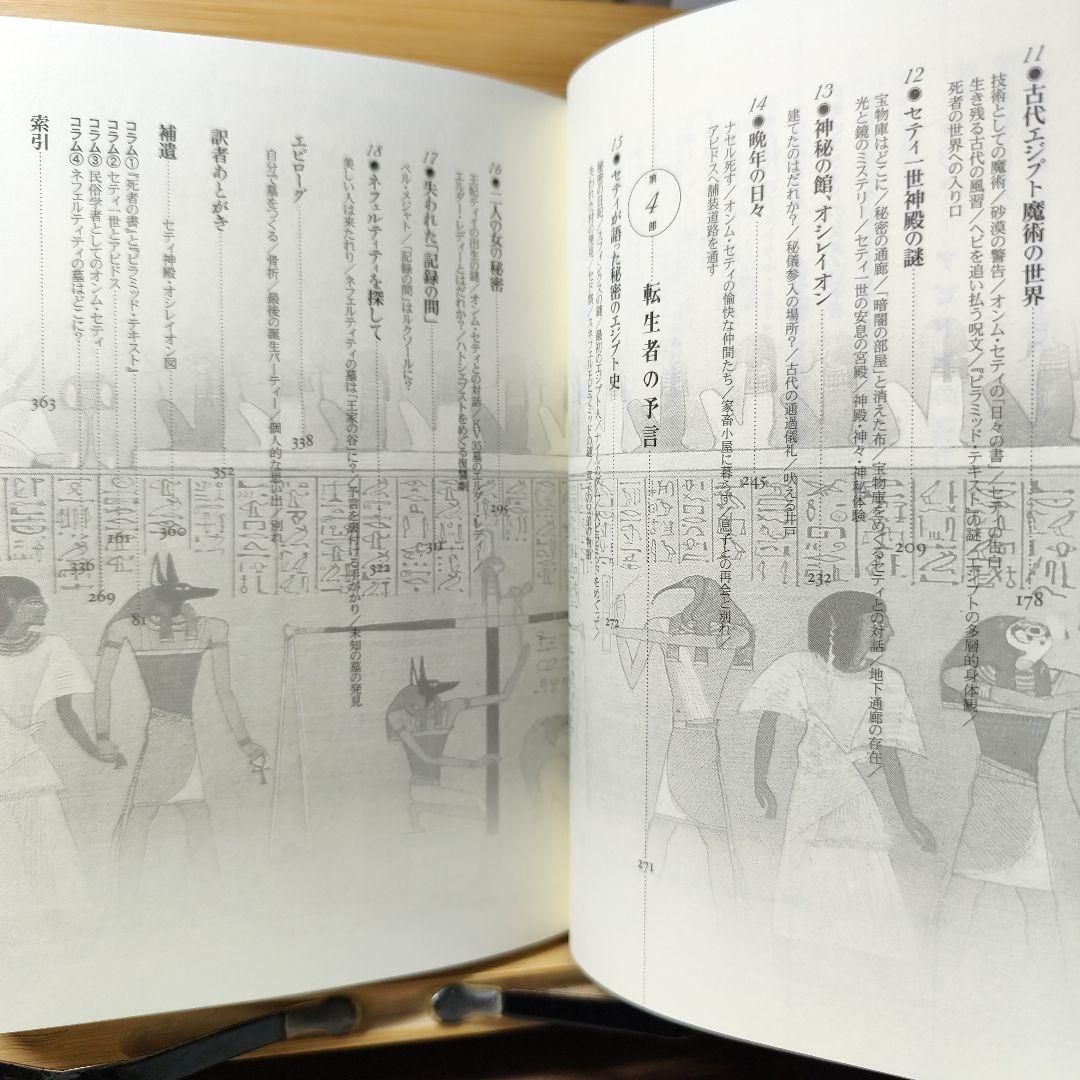 11●古代エジプト魔術の世界 178
技術としての魔術／砂漠の警告／オンム・セティの「日々の書」／セティの告白／
生き残る古代の風習／ヘビを追い払う呪文／『ピラミッド・テキスト』の謎／エジプトの多層的身体観／
死者の世界への入り口
12●セティ一世神殿の謎 209
宝物庫はどこに／秘密の通廊／「暗闇の部屋」と消えた布／宝物庫をめぐるセティとの対話／地下通廊の存在／
光と鏡のミステリー／セティ一世の安息の宮殿／神殿・神々・神秘体験
13●神秘の館、オシレイオン 232
建てたのはだれか？／秘儀参入の場所？／古代の通過儀礼／吠える井戸
14●晩年の日々 245
ナセル死す／オンム・セティの愉快な仲間たち／家畜小屋に暮らす／息子との再会と別れ／
アビドスへ舗装道路を通す
第4部 転生者の予言 271
15●セティが語った秘密のエジプト史 272
16●二人の女の秘密 295
王妃ティイの出生の謎／オンム・セティとの対話／KV35墓のエルダー・レディー／
エルダー・レディーとはだれか？／ハトシェプストをめぐる復讐劇
17●失われた「記録の間」 311
ペル・メジャト／「記録の間」はルクソールに？
18●ネフェルティティを探して 322
美しい人は来たれり／ネフェルティティの墓は「王家の谷」に？／予言を裏付ける手がかり／未知の墓の発見
エピローグ 338
自分で墓をつくる／骨折／最後の誕生パーティー／個人的な思い出／別れ
訳者あとがき 352
補遺 セティ神殿・オシレイオン図 360
コラム① 『死者の書』と『ピラミッド・テキスト』 81
コラム② セティ一世とアビドス 161
コラム③ 民俗学者としてのオンム・セティ 269
コラム④ ネフェルティティの墓はどこに？ 336
索引 363